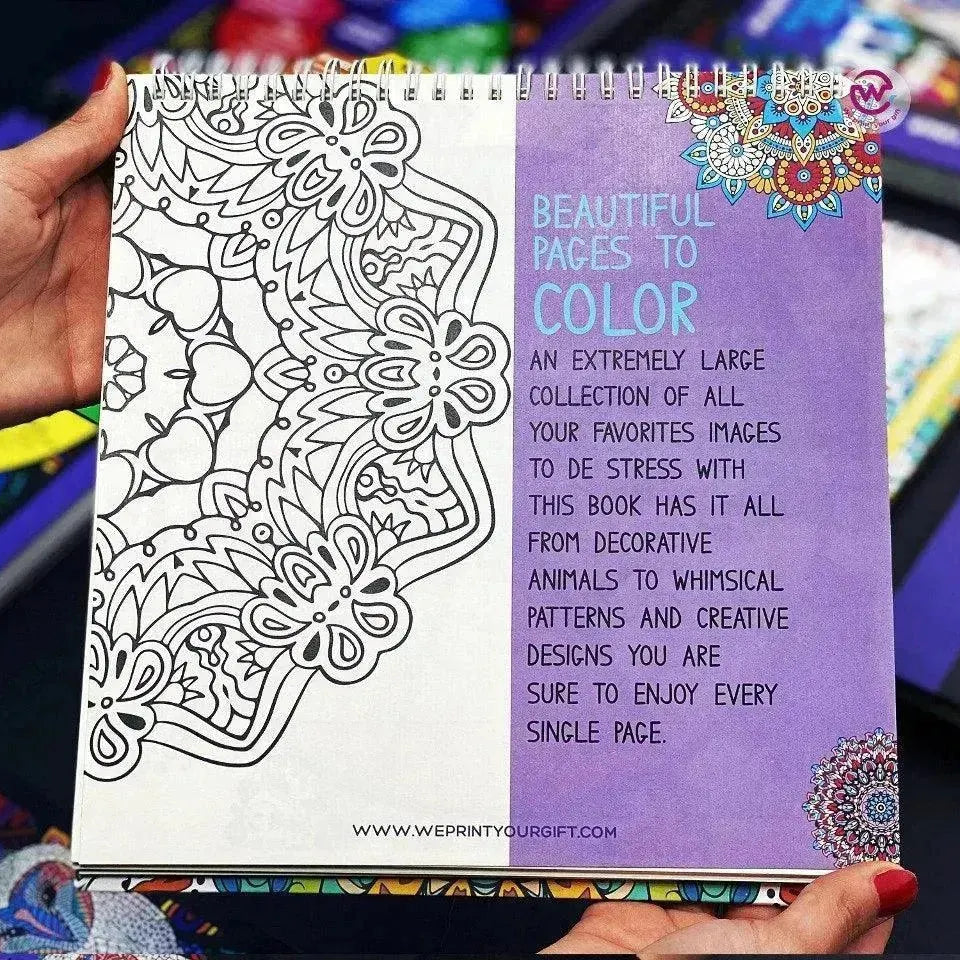 BEAUTIFUL
PAGES TO
COLOR
AN EXTREMELY LARGE
COLLECTION OF ALL
YOUR FAVORITES IMAGES
TO DE STRESS WITH
THIS BOOK HAS IT ALL
FROM DECORATIVE
ANIMALS TO WHIMSICAL
PATTERNS AND CREATIVE
DESIGNS YOU ARE
SURE TO ENJOY EVERY
SINGLE PAGE.
WWW.WEPRINTYOURGIFT.COM